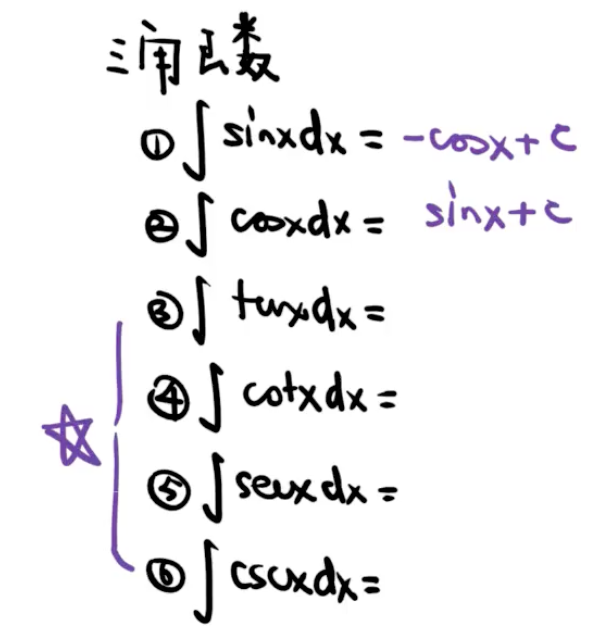 三角函数
① ∫ sinxdx = -cosx+C
② ∫ cosxdx = sinx+C
③ ∫ tanxdx =
④ ∫ cotxdx =
⑤ ∫ secxdx =
⑥ ∫ cscxdx =